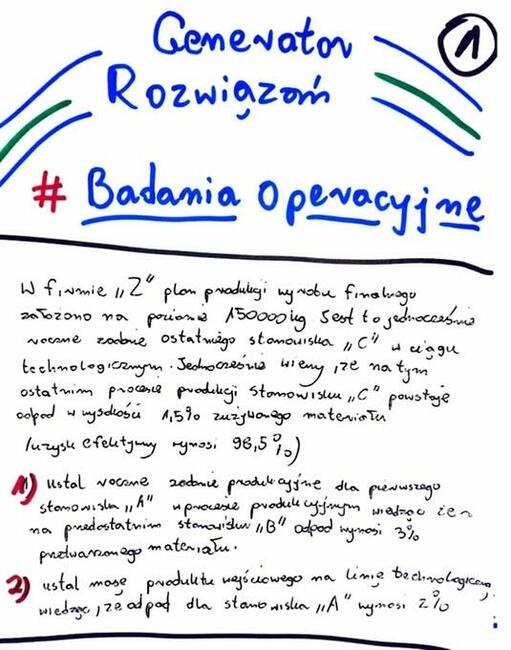 Generator
Rozwiązań
1
# Badania Operacyjne
W firmie „Z" plan produkcji wyrobu finalnego
założono na poziomie 150000kg Jest to jednocześnie
roczne zadanie ostatniego stanowiska „C" w ciągu
technologicznym. Jednocześnie wiemy, że na tym
ostatnim procesie produkcji stanowisku „C" powstaje
odpad w wysokości 1,5% zużywanego materiału
(uzysk efektywny wynosi 98,5%)
1) ustal roczne zadanie produkcyjne dla pierwszego
stanowiska „A" w procesie produkcyjnym wiedząc że
na przedostatnim stanowisku „B" odpad wynosi 3%
przetwarzanego materiału.
2) ustal masę produktu wejściowego na linię technologiczną,
wiedząc, że odpad dla stanowiska „A" wynosi 2%